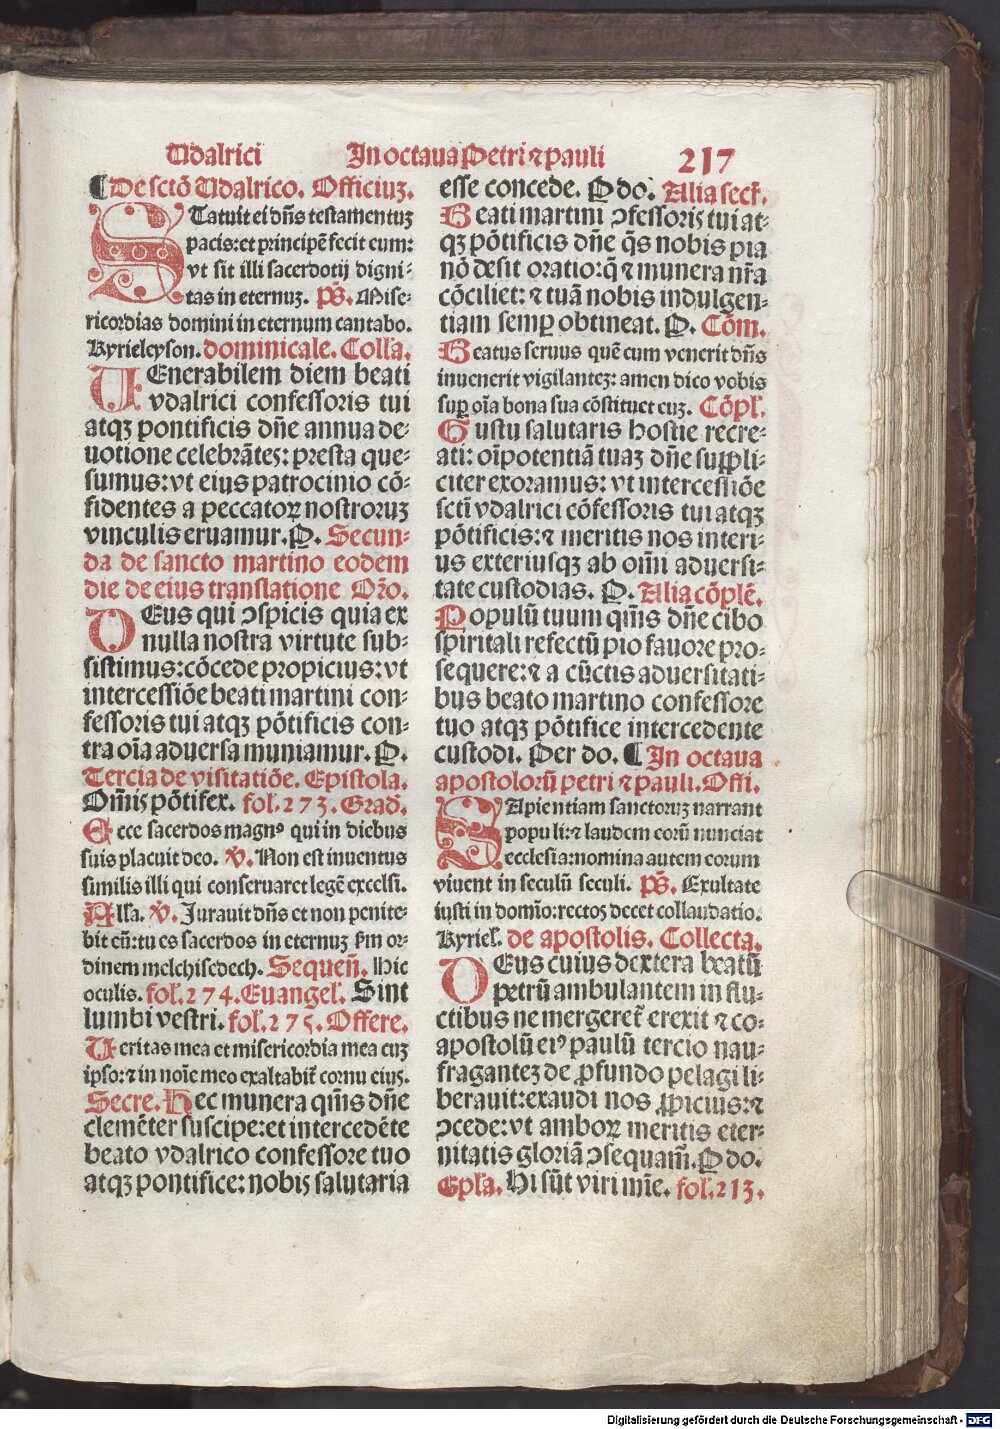 Udalrici In octaua Petri ⁊ pauli 217
¶ De sctō Udalrico. Officiuꝫ.
STatuit ei dn̄s testamentuꝫ
pacis: et principē fecit eum:
vt sit illi sacerdotij digni⸗
tas in eternuꝫ. pˢ̄. Mise⸗
ricordias domini in eternum cantabo.
Kyrieleyson. dominicale. Coll̄a.
UEnerabilem diem beati
vdalrici confessoris tui
atqꝫ pontificis dn̄e annua de⸗
uotione celebrātes: presta que⸗
sumus: vt eius patrocinio cō⸗
fidentes a peccatoꝝ nostroruꝫ
vinculis eruamur. P. Secun⸗
da de sancto martino eodem
die de eius translatione Or̄o.
DEus qui ↄspicis quia ex
nulla nostra virtute sub⸗
sistimus: cōcede propicius: vt
intercessiōe beati martini con⸗
fessoris tui atqꝫ pōtificis con⸗
tra oīa aduersa muniamur. P.
Tercia de visitatiōe. Epistola.
Om̄is pōtifex. fol. 273. Grad̄.
Ecce sacerdos magnꝰ qui in diebus
suis placuit deo. ℣. Non est inuentus
similis illi qui conseruaret legē excelsi.
All̄a. ℣. Jurauit dn̄s et non penite⸗
bit eū: tu es sacerdos in eternuꝫ ẜm or⸗
dinem melchisedech. Sequen̄. Hic
oculis. fol. 274. Euangel̄. Sint
lumbi vestri. fol. 275. Offere.
Ueritas mea et misericordia mea cuꝫ
ipso: ⁊ in noīe meo exaltabit̄ cornu eius.
Secre. Hec munera qm̄is dn̄e
clemēter suscipe: et intercedēte
beato vdalrico confessore tuo
atqꝫ pontifice: nobis salutaria
esse concede. P do. Alia secr̄.
Beati martini ↄfessoris tui at⸗
qꝫ pōtificis dn̄e q̄s nobis pia
nō desit oratio: q̄ ⁊ munera nr̄a
cōciliet: ⁊ tuā nobis indulgen⸗
tiam semꝑ obtineat. P. Cōm.
Beatus seruus quē cum venerit dn̄s
inuenerit vigilanteꝫ: amen dico vobis
suꝑ oīa bona sua cōstituet euꝫ. Cōpl̄.
Gustu salutaris hostie recre⸗
ati: oīpotentiā tuaꝫ dn̄e suꝓli⸗
citer exoramus: vt intercessiōe
sctī vdalrici cōfessoris tui atqꝫ
pōtificis: ⁊ meritis nos interi⸗
us exteriusqꝫ ab om̄i aduersi⸗
tate custodias. P. Alia cōplē.
Populū tuum qm̄is dn̄e cibo
spiritali refectū pio fauore pro⸗
sequere: ⁊ a cūctis aduersitati⸗
bus beato martino confessore
tuo atqꝫ pōtifice intercedente
custodi. Per do. ¶ In octaua
apostolorū petri ⁊ pauli. Offi.
SApientiam sanctoruꝫ narrant
populi: ⁊ laudem eorū nunciat
ecclesia: nomina autem eorum
viuent in seculū seculi. pˢ̄. Exultate
iusti in domīo: rectos decet collaudatio.
Kyriel̄. de apostolis. Collecta.
DEus cuius dextera beatū
petrū ambulantem in flu⸗
ctibus ne mergeret̄ erexit ⁊ co⸗
apostolū eiꝰ paulū tercio nau⸗
fraganteꝫ de ꝓfundo pelagi li⸗
berauit: exaudi nos ꝓpicius: ⁊
ↄcede: vt amboꝝ meritis eter⸗
nitatis gloriā ↄsequam̄. P do.
Epl̄a. Hi sūt viri mīe. fol. 213.
Digitalisierung gefördert durch die Deutsche Forschungsgemeinschaft - DFG